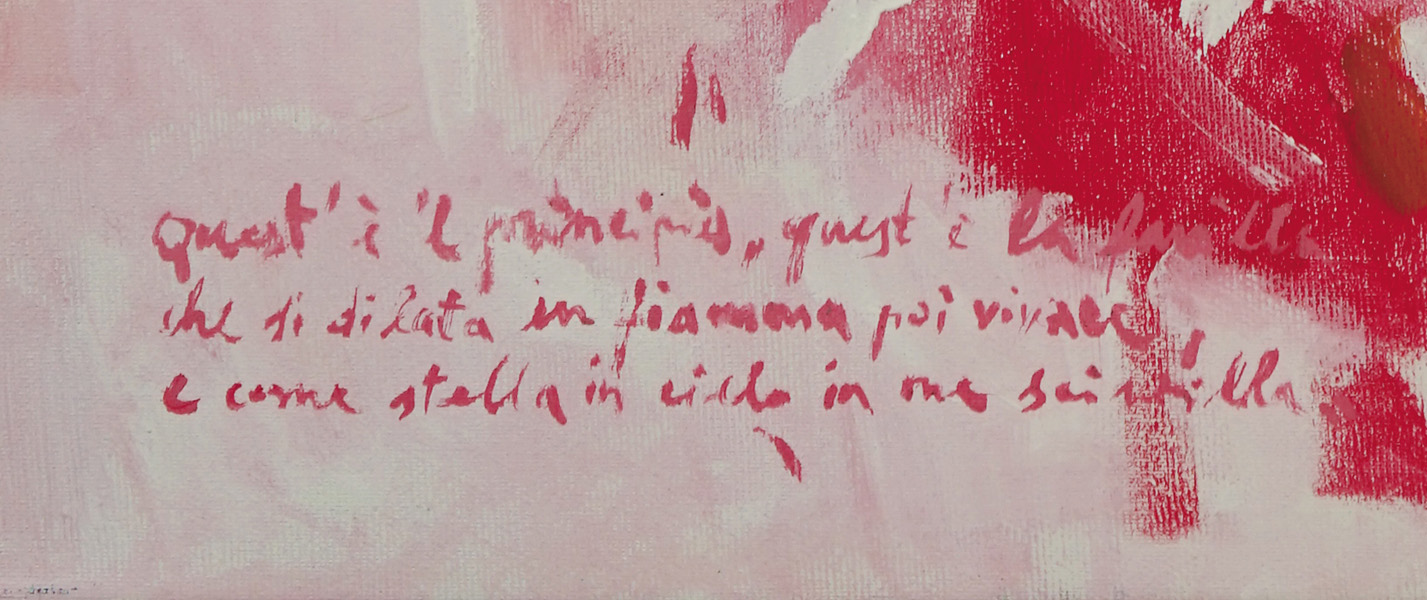 quest' è 'l principio, quest' è la favilla
che si dilata in fiamma poi vivace,
e come stella in cielo in me scintilla.